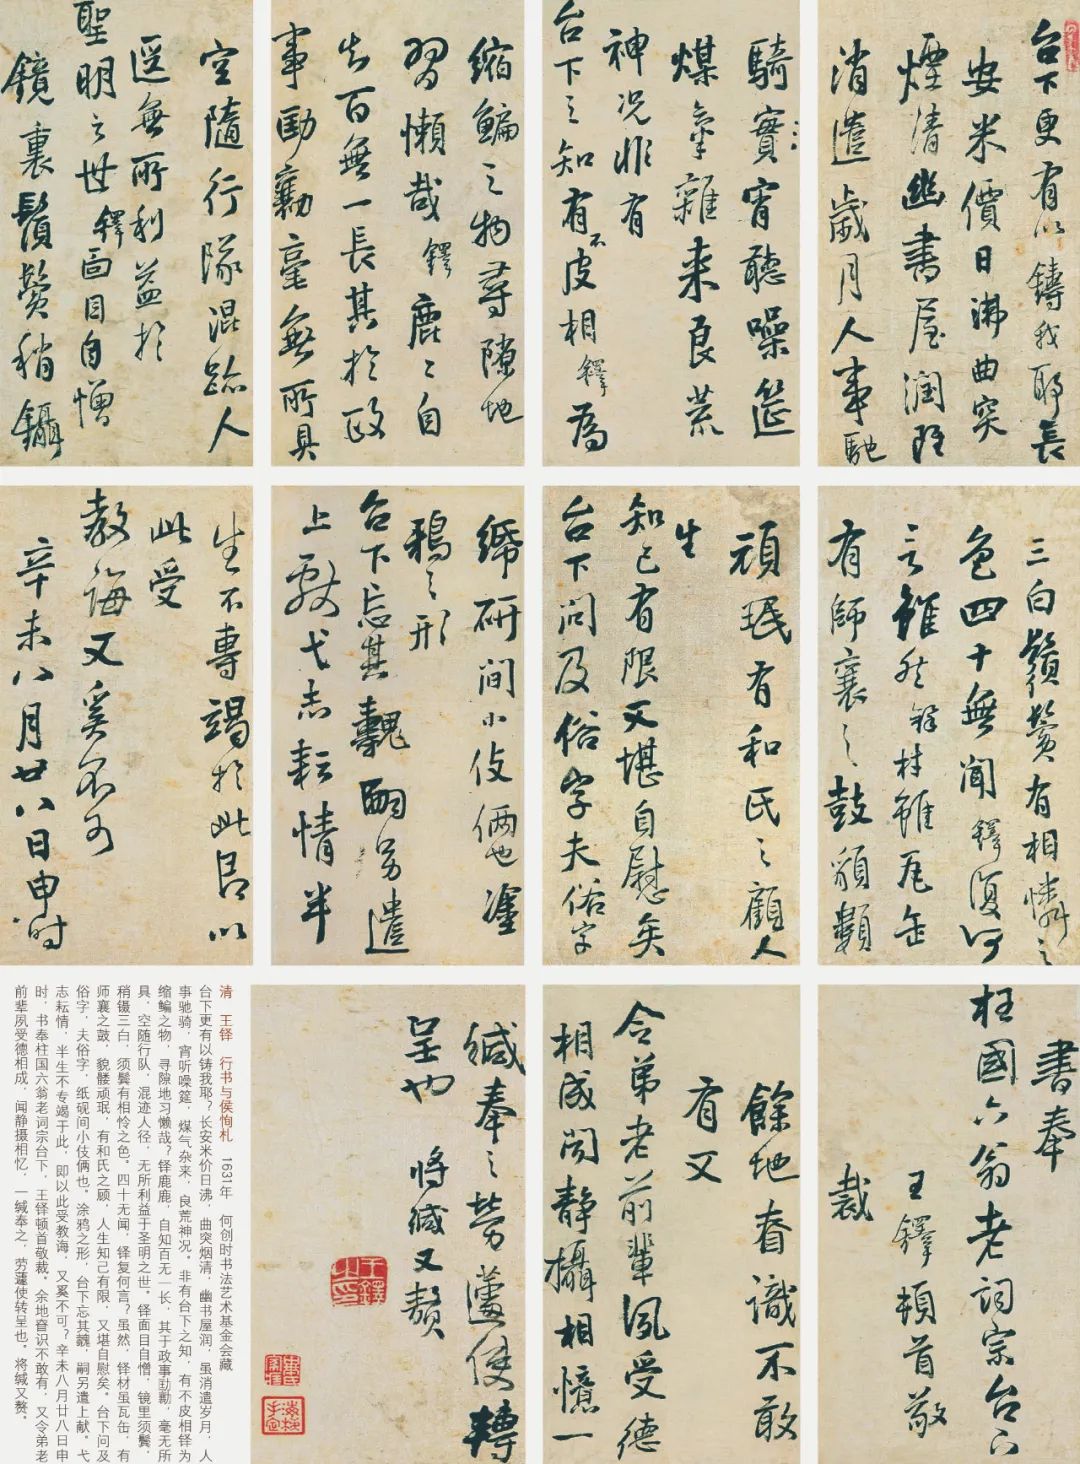 台下更有以鑄我耶長
安米價日沸曲突
煙清幽書屋潤雖
消遣歲月人事馳
騎實宵聽噪筵
煤氣雜来良荒
神况非有
台下之知有不皮相鐸為
缩鳊之物尋隙地
習懶哉鐸鹿鹿自
知百無一長其於政
事劻勷毫無所具
空隨行隊混跡人
逕無所利益於
聖明之世鐸面目自憎
鏡裏鬚鬢稍鑷
三白鬚鬢有相憐之
色四十無聞鐸復何
言雖然鐸材雖瓦缶
有師襄之鼓
頑珉有和氏之顧人
生
知己有限又堪自慰矣
台下問及俗字夫俗字
紙研间小伎俩也塗
鴉之形
台下忘其嗣另遣
上献弋志耘情半
生不專竭於此即以
此受
教誨又奚不可
辛未八月廿八日申时
書奉
柱國六翁老詞宗台下
王鐸頓首敬
裁
餘地眘識不敢
有又
令弟老前輩夙受德
相成闻静攝相憶一
緘奉之勞蘧使轉
呈也 將緘又贅
清 王铎 行书与侯恂札 1631年 何创时书法艺术基金会藏
台下更有以铸我耶？长安米价日沸，曲突烟清，幽书屋润，虽消遣岁月，人
事驰骑，宵听噪筵，煤气杂来，良荒神况。非有台下之知，有不皮相铎为
缩鳊之物，寻隙地习懒哉？铎鹿鹿，自知百无一长，其于政事劻勷，毫无所
具，空随行队，混迹人径，无所利益于圣明之世。铎面目自憎，镜里须鬓，
稍镊三白，须鬓有相怜之色。四十无闻，铎复何言？虽然，铎材虽瓦缶，有
师襄之鼓，貌髅顽珉，有和氏之顾，人生知己有限，又堪自慰矣。台下问及
俗字，夫俗字，纸砚间小伎俩也。涂鸦之形，台下忘其，嗣另遣上献。弋
志耘情，半生不专竭于此，即以此受教诲，又奚不可？辛未八月廿八日申
时，书奉柱国六翁老词宗台下，王铎顿首敬裁。余地眘识不敢有，又令弟老
前辈夙受德相成，闻静摄相忆，一缄奉之，劳蘧使转呈也。将缄又赘。